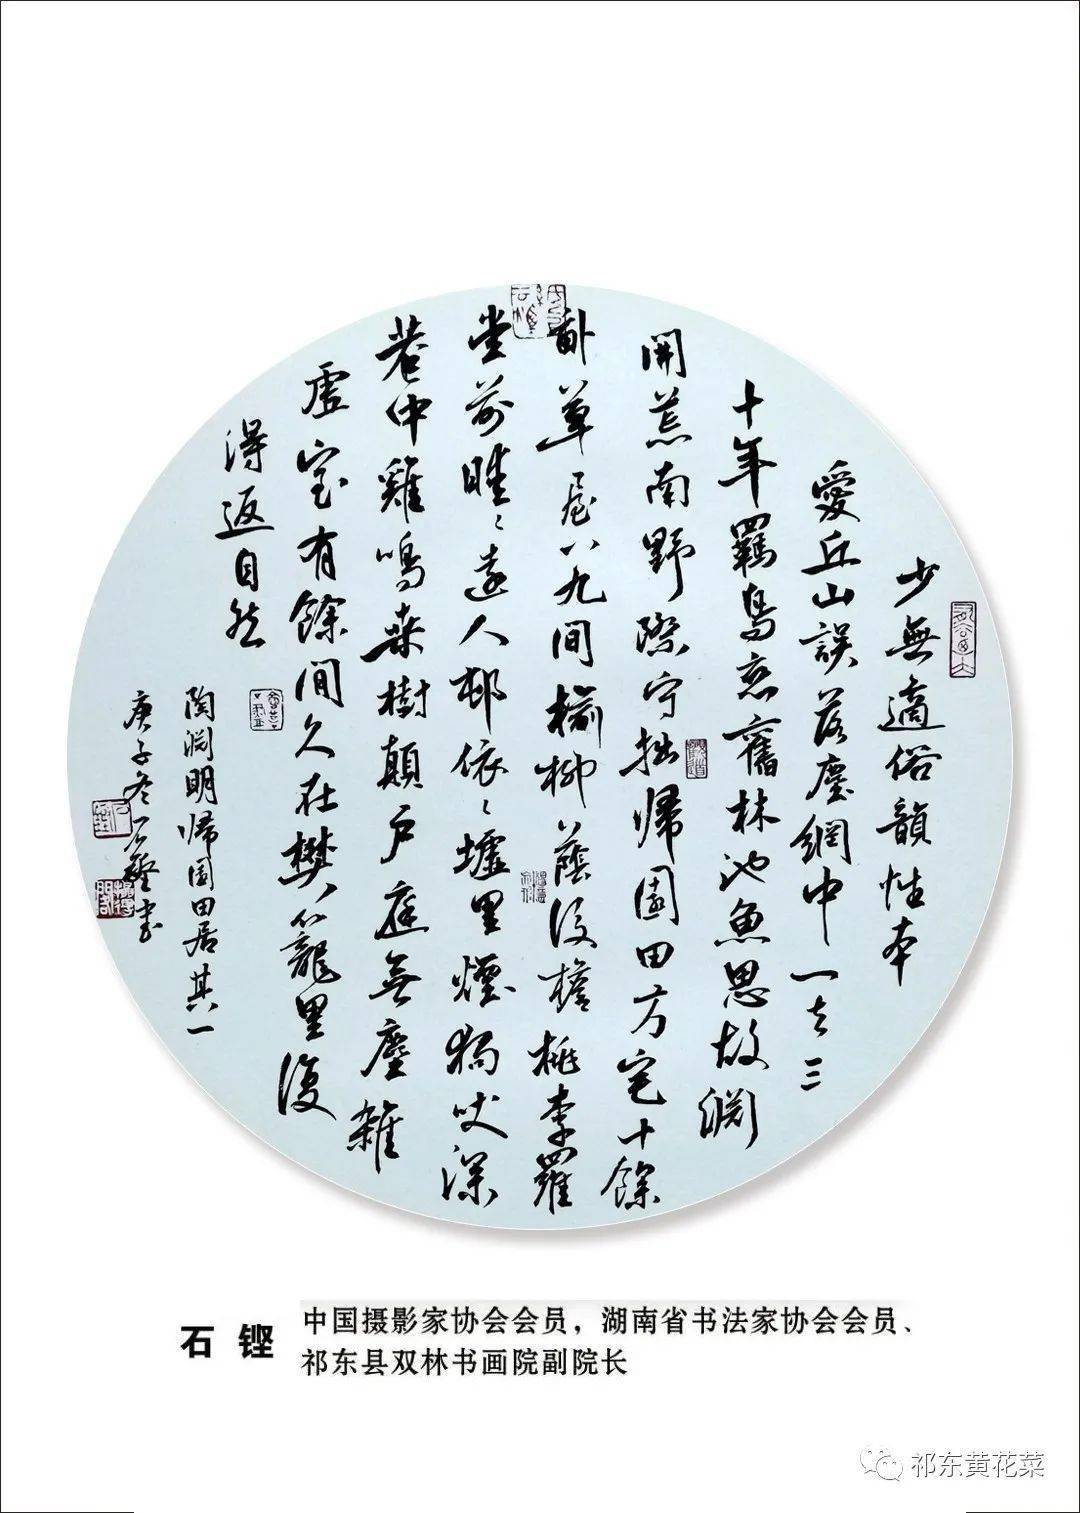 少無適俗韻性本
愛丘山誤落塵網中一去三
十年羈鳥戀舊林池魚思故淵
開荒南野際守拙歸園田方宅十餘
畝草屋八九間榆柳蔭後檐桃李羅
堂前曖〻遠人邨依〻墟里煙狗吠深
巷中雞鳴桑樹顛戶庭無塵雜
虛室有餘閒久在樊籠里復
得返自然
陶淵明歸園田居其一
庚子冬石鏗書
石 铿
中国摄影家协会会员，湖南省书法家协会会员、
祁东县双林书画院副院长
祁东黄花菜